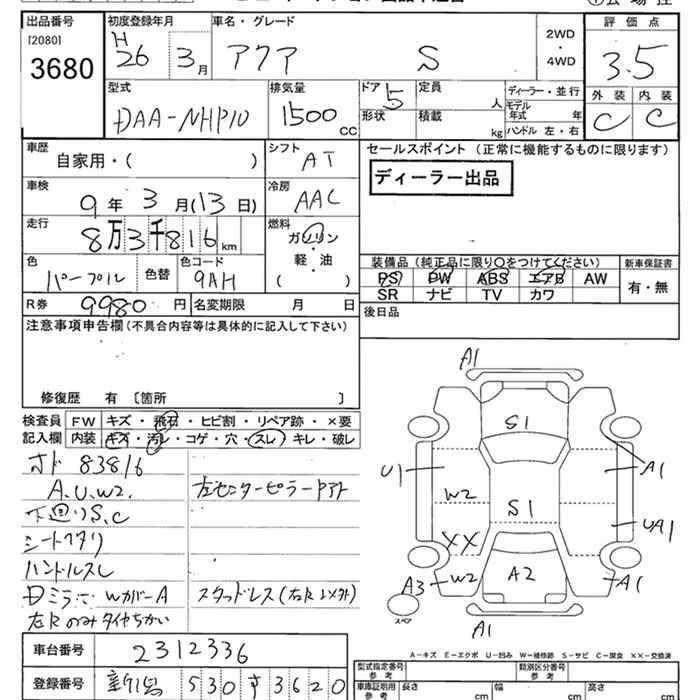 出品番号 初度登録年月 車名・グレード 2WD・4WD 評価点
[2080] 3680 H26 3月 アクア S 3.5
型式 排気量 ドア 5 定員 人 ディーラー・並行 外装 内装
DAA-NHP10 1500 CC 形状 積載 kg モデル年式 年 ハンドル 左・右 C C
車歴 自家用・( ) シフト AT セールスポイント (正常に機能するものに限ります)
車検 9年 3月(13日) 冷房 AAC ディーラー出品
走行 8万3千816km 燃料 ガソリン・軽・油 ( )
色 パープル 色替 色コード 9AH 装備品 (純正品に限り○をつけてください) 新車保証書
PS PW ABS エアB AW 有・無
SR ナビ TV カワ
R券 9980円 名変期限 月 日 後日品
注意事項申告欄 (不具合内容等は具体的に記入して下さい)
修復歴 有 〔箇所 〕
検査員 FW キズ・飛石・ヒビ割・リペア跡・×要
記入欄 内装 キズ・汚レ・コゲ・穴・スレ・キレ・破レ
オド 83816
A.U.W2. 左センターピラーアト
下廻りS.C
シートヘタリ
ハンドルスレ
Dミラー WカバーA スタッドレス (右R以外)
右Rのみタイヤちがい
A1
S1
U1 A1
W2
S1 UA1
XX
A3 W2 A2 A1
スペア
A1
A-キズ E-エクボ U-凹み W-補修跡 S-サビ C-腐食 XX-交換済
車台番号 2312336 型式指定番号 参考 類別区分番号 参考
登録番号 530 す 3620 車庫証明用 参考 長さ cm 幅 cm 高さ cm